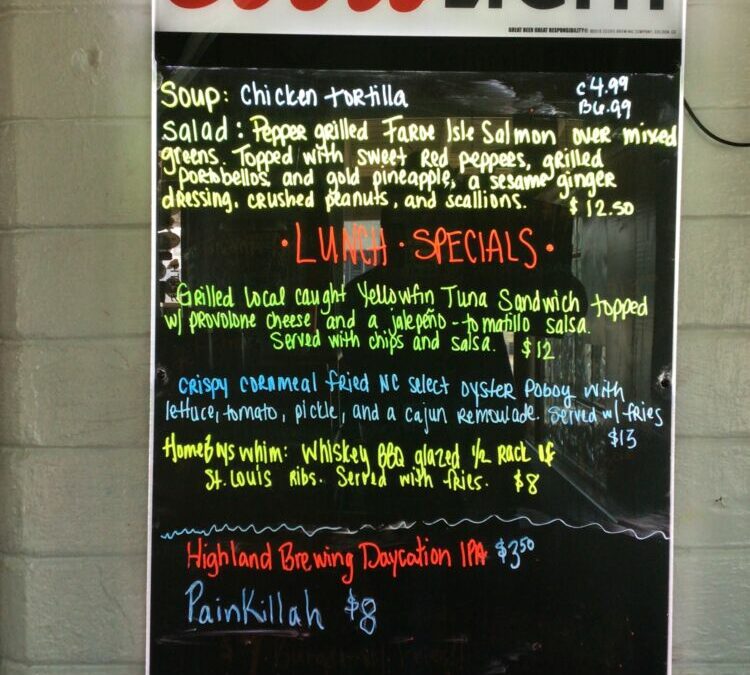 Coors LIGHT
GREAT BEER GREAT RESPONSIBILITY® ©2018 COORS BREWING COMPANY, GOLDEN, CO
Soup: Chicken Tortilla C4.99
B6.99
Salad: Pepper grilled Faroe Isle Salmon over mixed
greens. Topped with sweet Red peppers, grilled
portobellos and gold pineapple, a sesame ginger
dressing, crushed peanuts, and scallions. $12.50
• LUNCH • SPECIALS •
Grilled local caught Yellowfin Tuna Sandwich topped
w/ provolone cheese and a jalepeño-tomatillo salsa.
Served with chips and salsa. $12
Crispy cornmeal fried NC select oyster Poboy with
lettuce, tomato, pickle, and a cajun remoulade. Served w/ fries
$13
Homeboys whim: Whiskey BBQ glazed 1/2 rack of
St. Louis ribs. Served with fries. $8
Highland Brewing Daycation IPA $3.50
PainKillah $8